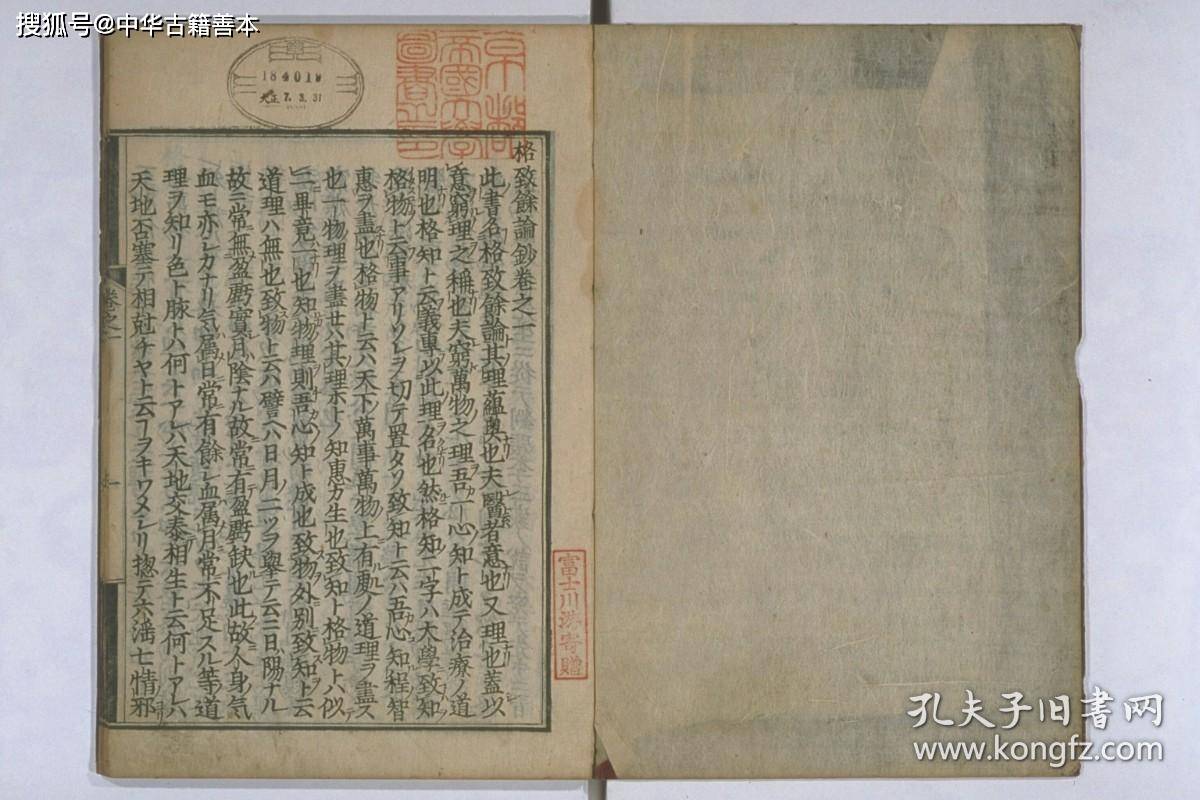 搜狐号@中华古籍善本
184019
大正 7. 3. 31
京都
帝國大學
圖書之印
格致餘論鈔卷之一
此書名格致餘論其理蘊奧也夫醫者意也又理也蓋以
意窮理之稱也夫窮萬物之理吾一心知ト成テ治療ノ道
明也格知ト云義專以此理名也然格知二字ハ大學致知
格物ト云事アリソレヲ切テ置タソ致知ト云ハ吾心知程智
惠ヲ盡也格物ト云ハ天下萬事萬物上有處ノ道理ヲ盡ス
也一物理ヲ盡せハ其理ホトノ知惠カ生也致知ト格物トハ似
二畢竟一也知物理則吾心知ト成也致物外別致知ト云
道理ハ無也致物ト云ハ譬ヘハ日月二ツヲ擧テ云ニ日陽ナル
故ニ常無盈虧實月陰ナル故常有盈虧缺也此故人身氣
血モ亦シカナリ気属日常有餘シ血属月常不足スル等ノ道
理ヲ知リ色ト脉トハ何トアレハ天地交泰相生ト云何トアレハ
天地否塞テ相尅チヤト云フヲキワメシリ揔テ六滛七情邪
卷之一
富士川游寄贈
孔夫子旧书网
www.kongfz.com